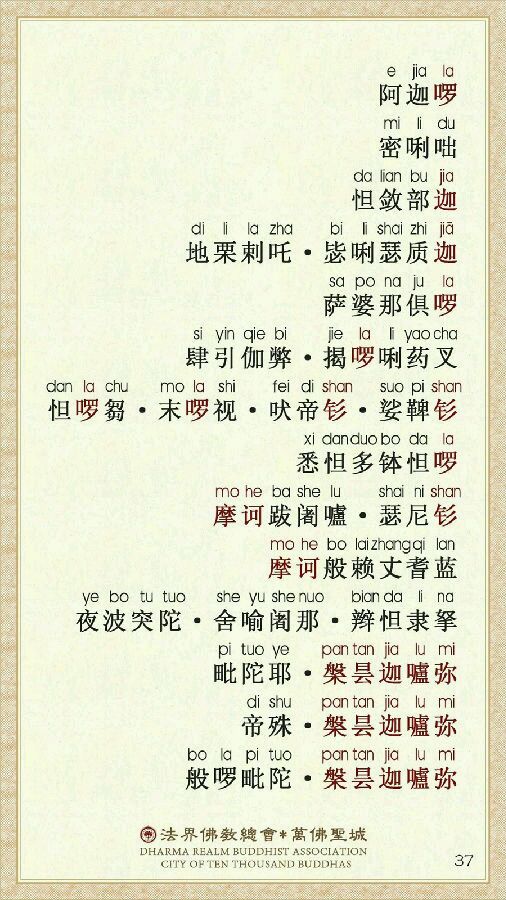 e jia la
阿迦啰
mi li du
密唎咄
da lian bu jia
怛敛部迦
di li la zha bi li shai zhi jiā
地栗剌吒・毖唎瑟质迦
sa po na ju la
萨婆那俱啰
si yin qie bi jie la li yao cha
肆引伽弊・揭啰唎药叉
dan la chu mo la shi fei di shan suo pi shan
怛啰芻・末啰视・吠帝钐・娑鞞钐
xi dan duo bo da la
悉怛多钵怛啰
mo he ba she lu shai ni shan
摩诃跋阇嚧・瑟尼钐
mo he bo lai zhang qi lan
摩诃般赖丈耆蓝
ye bo tu tuo she yu she nuo bian da li na
夜波突陀・舍喻阇那・辫怛隶拏
pi tuo ye pan tan jia lu mi
毗陀耶・槃昙迦嚧弥
di shu pan tan jia lu mi
帝殊・槃昙迦嚧弥
bo la pi tuo pan tan jia lu mi
般啰毗陀・槃昙迦嚧弥
法界佛教總會・萬佛聖城
DHARMA REALM BUDDHIST ASSOCIATION
CITY OF TEN THOUSAND BUDDHAS
37